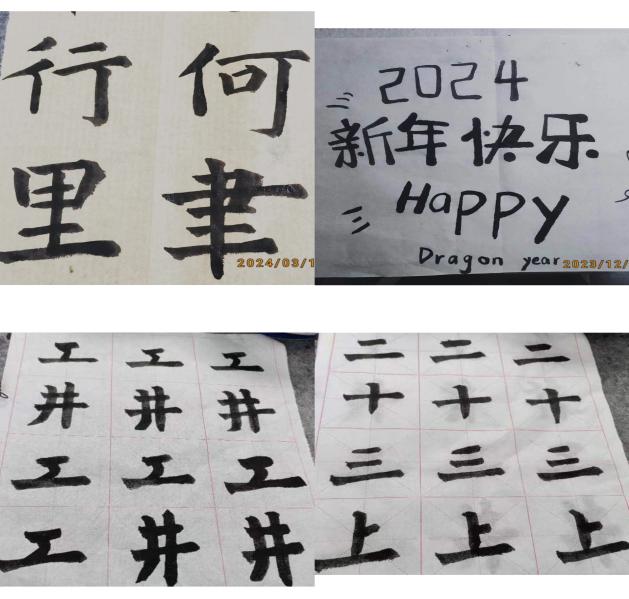 行 何
里 聿
2024/03/1
2024
新年快乐
Happy
Dragon year
2023/12/
工 工 工
井 井 井
工 工 工
工 井 井
二 二 二
十 十 十
三 三 三
上 上 上